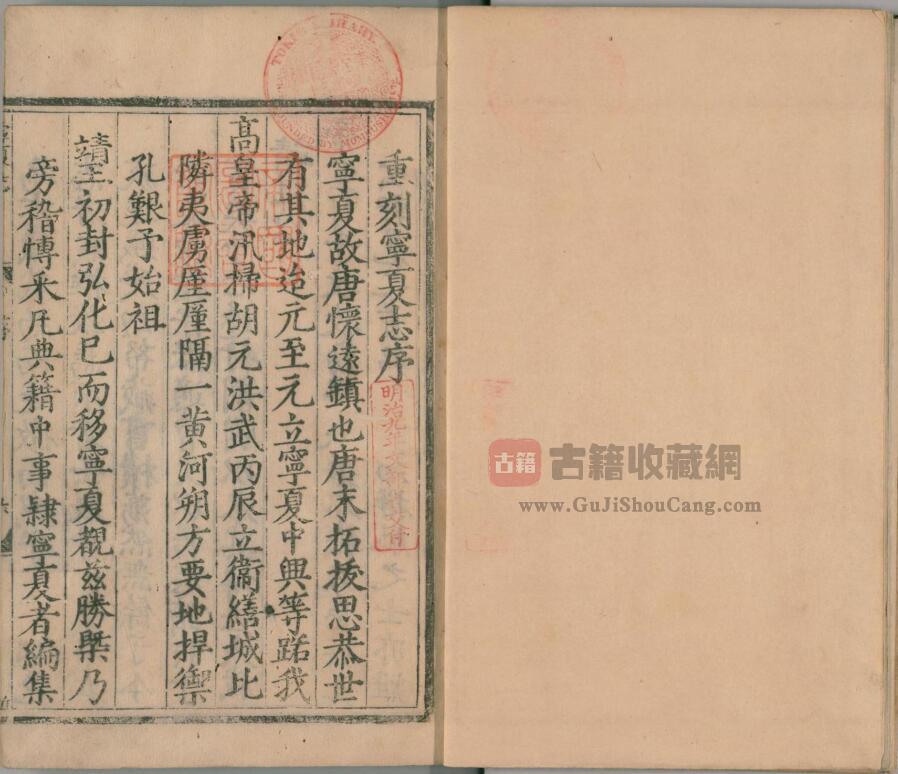 重刻寧夏志序
寧夏故唐懷遠鎮也唐末拓拔思恭世
有其地迨元至元立寧夏中興等路我
高皇帝汛掃胡元洪武丙辰立衞繕城比
隣夷虜厪厪隔一黃河朔方要地捍禦
孔艱予始祖
靖王初封弘化巳而移寧夏覩兹勝槩乃
旁稽愽采凡典籍中事隷寧夏者編集
TOKIO LIBRARY
FOUNDED BY MOMBUSHO
明治九年文部省交付
古籍
古籍收藏網
www.GuJiShouCang.com